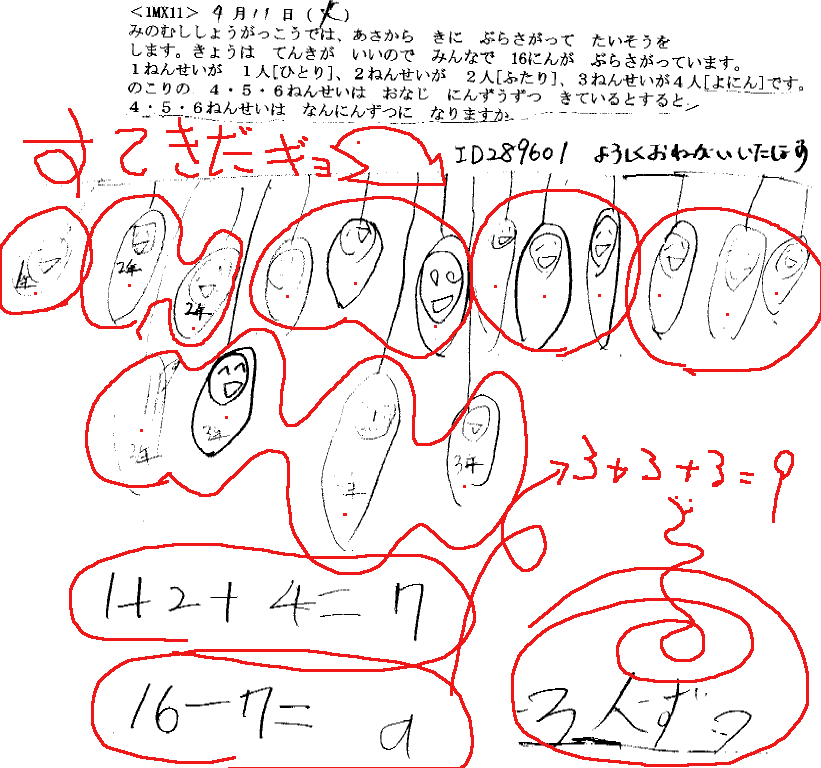 <1MX11> 4月11日(火)
みのむししょうがっこうでは、あさから きに ぶらさがって たいそうを
します。きょうは てんきが いいので みんなで 16にんが ぶらさがっています。
1ねんせいが 1人[ひとり]、2ねんせいが 2人[ふたり]、3ねんせいが4人[よにん]です。
のこりの 4・5・6ねんせいは おなじ にんずうずつ きているとすると、
4・5・6ねんせいは なんにんずつに なりますか
すてきだギョ
ID289601 よろしくおねがいいたします
1年
2年
2年
3年
3年
年
3年
3+3+3=9
1+2+4=7
16-7= 9
3人ずつ